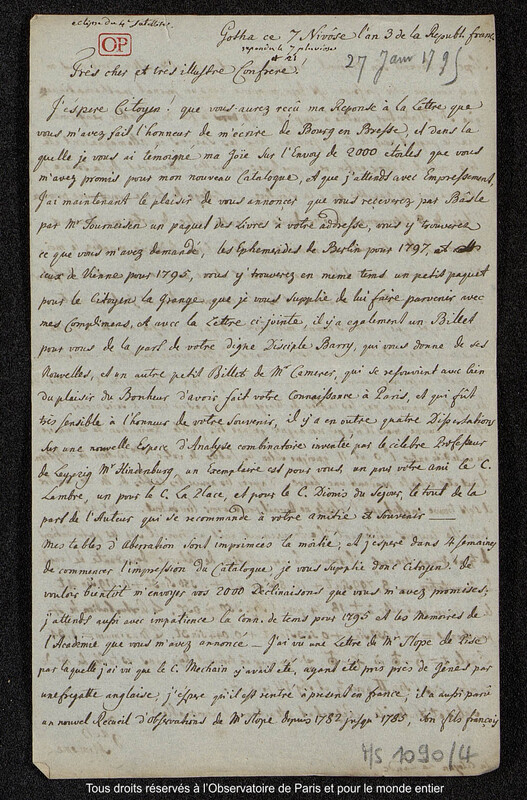 eclipse du 4e satellite
OP
Gotha ce 7 Nivôse l'an 3 de la Republ. franç.
repondu le 7 pluviose
27 Janv 1795
Très cher et très illustre Confrere!
J'espere Citoyen! que vous aurez reçû ma Reponse à la Lettre que
vous m'avez fait l'honneur de m'ecrire de Bourg en Bresse, et dans la
quelle je vous ai temoigne ma Joïe sur l'Envoy de 2000 étoiles que vous
m'avez promis pour mon nouveau Catalogue, et que j'attends avec Empressement,
J'ai maintenant le plaisir de vous annoncer que vous recevrez par Bâsle
par Mr Tourneisen un paquet des Livres à votre addresse, vous y trouverez
ce que vous m'avez demandé, les Ephemerides de Berlin pour 1797, et
ceux de Vienne pour 1795, vous y trouverez en meme tems un petit paquet
pour le Citoyen La Grange que je vous supplie de lui faire parvenir avec
mes Complimens, et avec la Lettre ci-jointe, il y a egalement un Billet
pour vous de la part de votre digne Disciple Barry, qui vous donne de ses
Nouvelles, et un autre petit Billet de Mr Camerer, qui se resouvint avec bien
du plaisir du Bonheur d'avoir fait votre Connaissance à Paris, et qui fût
très sensible à l'honneur de votre souvenir, il y a en outre quatre Dissertations
sur une nouvelle Espece d'Analyse combinatoire inventée par le célebre Professeur
de Leypzig Mr Hindenburg un Exemplaire est pour vous, un pour votre ami le C.
Lambre, un pour le C. La Place, et pour le C. Dionis du Séjour, le tout de la
part de l'Auteur qui se recommande à votre amitie et souvenir —
Mes tables d'aberration sont imprimées la moitie, et j'espere dans 4 semaines
de commencer l'impression du Catalogue, je vous supplie donc Citoyen! de
vouloir bientôt m'envoyer vos 2000 Declinaisons que vous m'avez promises;
j'attends aussi avec impatience la Conn. de tems pour 1795 et les Memoires de
l'Académie que vous m'avez annoncé — J'ai vû une Lettre du Mr Slope de Pise
par laquelle j'ai vu que le C. Mechain y avait été, ayant été pris près de Gênes par
une fregatte anglaise; j'espere qu'il est rentré à present en france, il a aussi parû
un nouvel Recueil d'observations de Mr Slope depuis 1782 jusqu'1785, son fils françois
MS 1090/4
Tous droits réservés à l'Observatoire de Paris et pour le monde entier